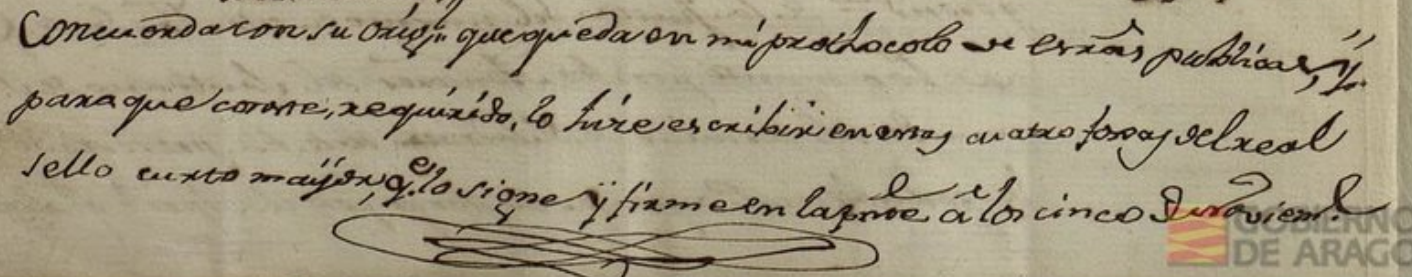 Concuerda con su orig.l que queda en mi prothocolo de essras publicas, y
para que conste, requirido, lo hize escribir en estas cuatro fojas del real
sello cuarto mayor, q.e lo signe y firme en la pnte á los cinco de noviem.e
GOBIERNO
DE ARAGO